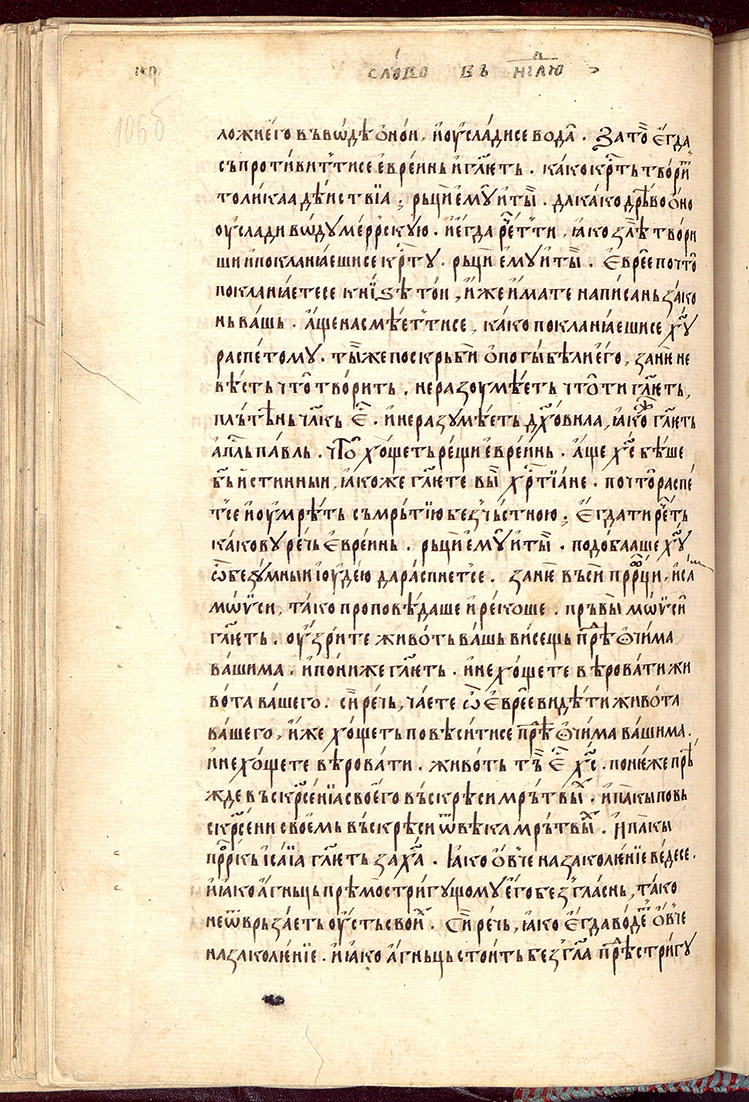 сло́во въ н҃лю
106б
ложиѐго въвѡ́дѣ ѻ҆но́и, ѝоу҆сла́дисе вода̀ . Зато̀ є҆гда
съпроти́витⷮисе є҆вре́инь и҆гл҃ѥть . ка́ко крⷭ҇ть твори́тⷮ
толи́каа дѣ́иствїа ; рьцѝ є҆мꙋ̀ и҆ты̀ . да ка́ко дрѣ́во ѻ҆но
оу҆слади вѡ́ду ме́ррскую . и҆є҆гда ре́четⷮти , ꙗ҆ко ѕлѣ̀ твори
ши и҆покланꙗ́ешисе крⷭ҇ту . рьцѝ є҆му и҆ты̀ . Є҆вре́е почто̀
покланꙗ́етесе кни́ѕѣ то́и , и҆́же и҆́мате напи́сань зако
нь ва́шь . а҆́ще насмѣе́тⷮтисе , ка́ко покланꙗ́ешисе хⷭ҇у
распе́тому . ты́же поскрьбѝ ѻ҆погы́бѣли є҆го̀ , занѐ не
вѣ́сть что̀ твори́ть , неразоумѣ́еть что̀ ти гл҃ѥть ,
пльтѣ́нь чл҃кь є҆ⷭ . и҆неразумѣ́еть дх҃о́внаа , ꙗ҆ко́же гл҃ѥть
а҆пⷭ҇ль па́вль . что̀ хо́щеть рещѝ є҆вре́инь . а҆́ще хⷭ҇ бѣ́ше
бь҃ и҆́стинныи , ꙗ҆́коже гл҃ѥте вы̀ хрⷭ҇тїа́не . почто̀ распе́
тⷮсе и҆оу҆мрѣ́ть съмрь́тїю беꙁчь́стною ; Є҆гда ти рⷱ҇еть
какову̀ рѣ́чь є҆вре́инь . рьцѝ є҆мꙋ̀ и҆ты̀ . подоба́аше хⷭ҇у
ѿ беꙁу́мныи і҆ѹде́ю да распне́тⷮсе . занѐ въсѝ прⷪ҇рци , и҆са
мѡѷси , та́ко проповѣ́даше и҆реко́ше . пръвы̀ мѡѷсѝ
гл҃ѥть . оу҆́зрите живо́ть ва́шь ви́сещь прⷣѣ ѻ҆чи́ма
ва́шима . и҆пони́же гл҃ѥть . и҆не хо́щете вѣ́ровати жи
вота ва́шего . си́ рѣчь , ча́ете ѽ є҆вре́е ви́дѣти живо́та
ва́шего , и҆́же хо́щеть повѣ́ситисе прⷣѣ ѻ҆чи́ма ва́шима .
и҆не хо́щете вѣ́ровати . живо́ть тъ̀ є҆ⷭ хⷭ҇ . поне́же прѣ́
жде въскрⷭ҇е́нїа своего̀ въскрѣ́си мрь́твыⷯ . и҆па́кы по въ
скрⷭ҇е́ни своемь въскрѣ́си ѿ вѣ́ка мрь́твыⷯ . И҆ па́кы
прⷪ҇ркь і҆са́їа гл҃ѥть за хⷭ҇а . ꙗ҆ко ѻ҆вче́ на заколе́нїе ве́десе .
и҆ꙗ҆́ко а҆́гньць прѣ́мо стригу́щому є҆го̀ без гла́снь , та́ко
не ѿврь́заеть оу҆́сть свои́ⷯ . Си́ рѣчь , ꙗ҆́ко є҆гда во́детⷮ ѻ҆вче́
на заколе́нїе . и҆ꙗ҆́ко а҆́гньць стои́ть без гл҃а прⷣѣ стри́гу